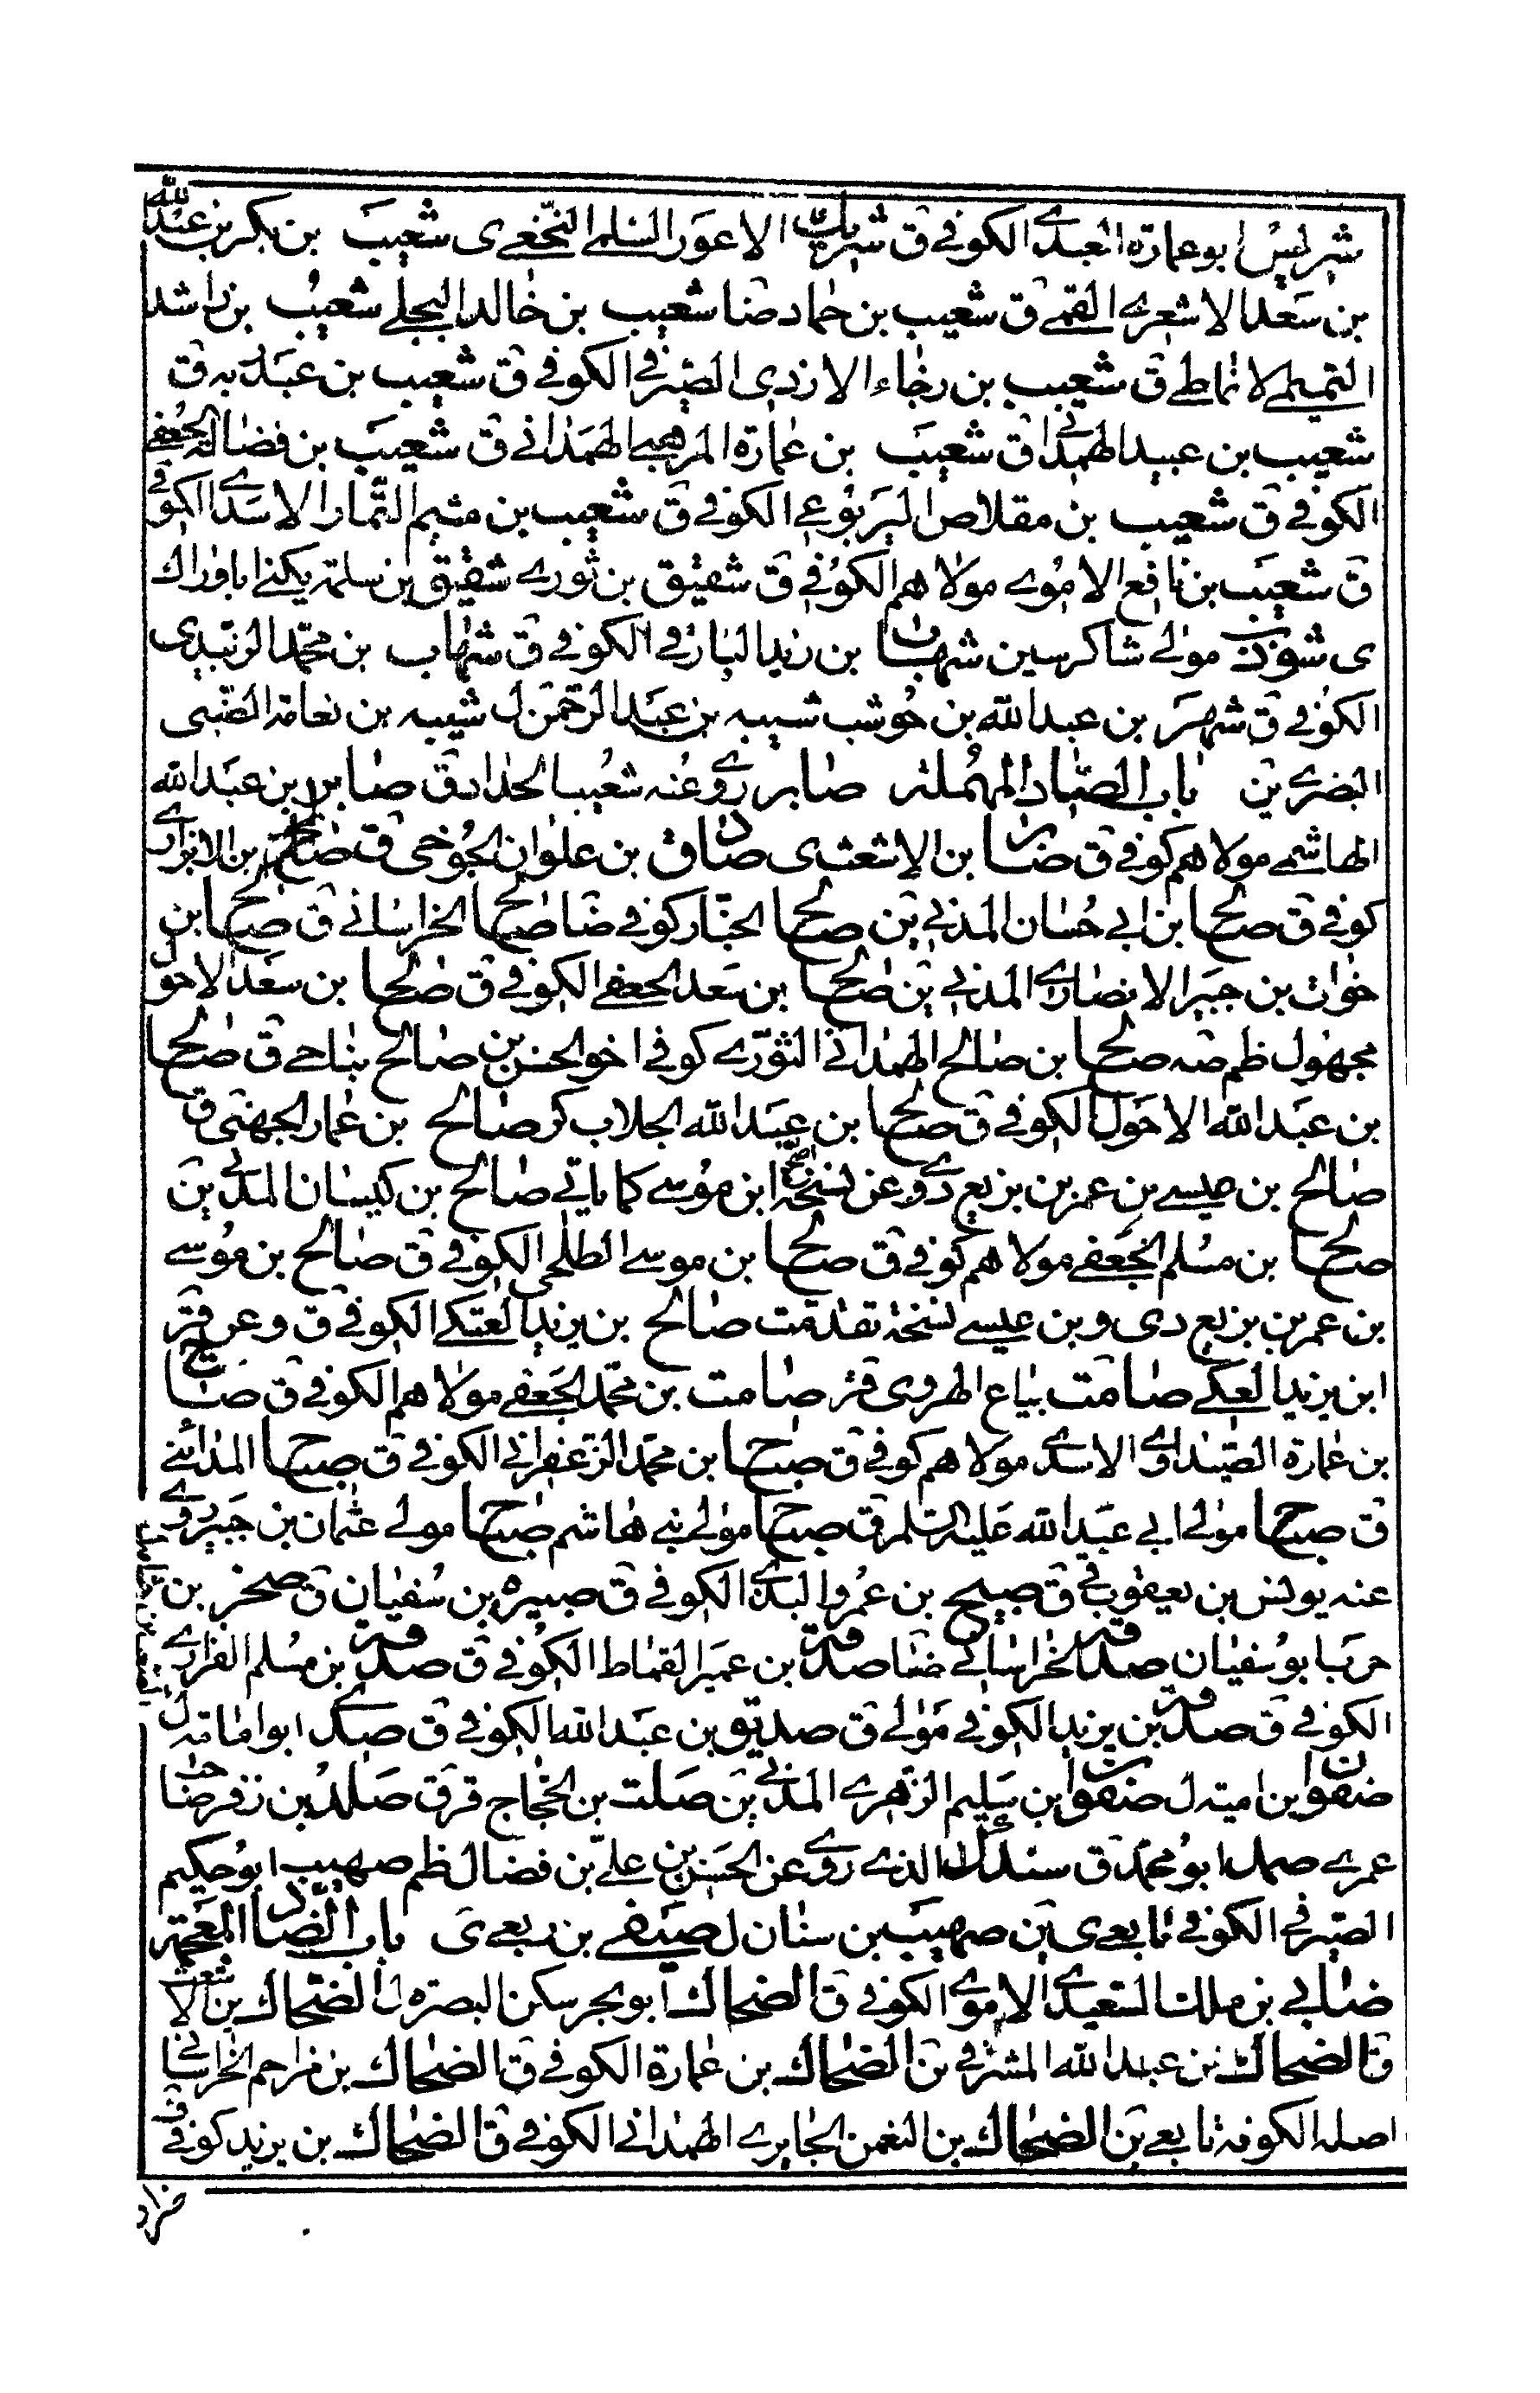 شريس ابو عمارة العبدي الكوفي ق شريك الاعور السلمي النخعي ى شعيب بن بكر بن عبد الله
بن سعد الاشعري القمي ق شعيب بن حماد ضا شعيب بن خالد البجلي شعيب بن راشد
التميمي الانماطي ق شعيب بن رجاء الازدي الصيرفي الكوفي ق شعيب بن عبد ربه ق
شعيب بن عبيد الهمداني ق شعيب بن عمارة المرهبي الهمداني ق شعيب بن فضالة الجعفي
الكوفي ق شعيب بن مقلاص اليربوعي الكوفي ق شعيب بن ميثم التمار الاسدي الكوفي
ق شعيب بن نافع الاموي مولاهم الكوفي ق شقيق بن ثور ي شقيق بن سلمة يكنى ابا وراك
ى شوذب مولى شاكر سين شهاب بن زيد البارقي الكوفي ق شهاب بن محمد الزبيدي
الكوفي ق شهر بن عبد الله بن حوشب شيبه بن عبد الرحمن ل شيبه بن نعامة الضبي
البصري ين باب الصاد المهملة صابر روى عنه شعيب الحداد ق صابر بن عبد الله
الهاشمي مولاهم كوفي ق بن الاشعث ى صادق بن علوان الجوخي ق صالح بن الابزاري
كوفي ق صالح بن ابي حسان المدني ين صالح الخباز كوفي ضا صالح الخراساني ق صالح بن
خوات بن جبير الانصاري المدني ين صالح بن سعد الجعفي الكوفي ق صالح بن سعد الاحول
مجهول ظم ضه صالح بن صالح الهمداني الثوري كوفي اخو الحسن بن صالح بتاحي ق صالح
بن عبد الله الاحول الكوفي ق صالح بن عبد الله الجلاب كر صالح بن عمار الجهني ق
صالح بن عيسى بن عمر بن بزيع دى وعن نسخة ابن موسى كما ياتي صالح بن كيسان المدني ين
صالح بن مسلم الجعفي مولاهم كوفي ق صالح بن موسى الطلحي الكوفي ق صالح بن موسى
بن عمر بن بزيع دى وبن عيسى نسخة تقدمت صالح بن يزيد العتكي الكوفي ق وعن قر
ابن يزيد العكي صامت بياع الهروي قر صامت بن محمد الجعفي مولاهم الكوفي ق صباح
بن عمارة الصيداوي الاسدي مولاهم كوفي ق صباح بن محمد الزعفراني الكوفي ق صباح المدائني
ق صباح مولى ابي عبد الله عليه السلم ق صباح مولى بني هاشم صباح مولى عثمان بن جبير روى
عنه يونس بن يعقوب في ق صبيح بن عمرو البدي الكوفي ق صبيره بن سفيان ق صخر بن
حرب ابو سفيان صدقة الخراساني ضا صدقة بن عمير القماط الكوفي ق صدقة بن مسلم الفزاري
الكوفي ق صدقة بن يزيد الكوفي مولى ق صديق بن عبد الله الكوفي ق صدي ابو امامة ل
صفوان بن امية ل صفوان بن سليم الزهري المدني ين صلت بن الحجاج قر ق صلد بن زفر ضا حب
عمر ي صمل ابو محمد ق سندل الذي روى عن الحسن بن علي بن فضال ظم صهيب ابو حكيم
الصيرفي الكوفي تابعي ى ين صهيب بن سنان ل صيفي بن ربعي ى باب الضاد المعجمة
ضابي بن ملك السعيدي الاموي الكوفي ق الضحاك ابو بحر سكن البصرة ل الضحاك بن الاشعث
ق الضحاك بن عبد الله المشرقي ين الضحاك بن عمارة الكوفي ق الضحاك بن مزاحم الخراساني
اصله الكوفة تابعي ين الضحاك بن النعمن الجابري الهمداني الكوفي ق الضحاك بن يزيد كوفي ق
ضرار